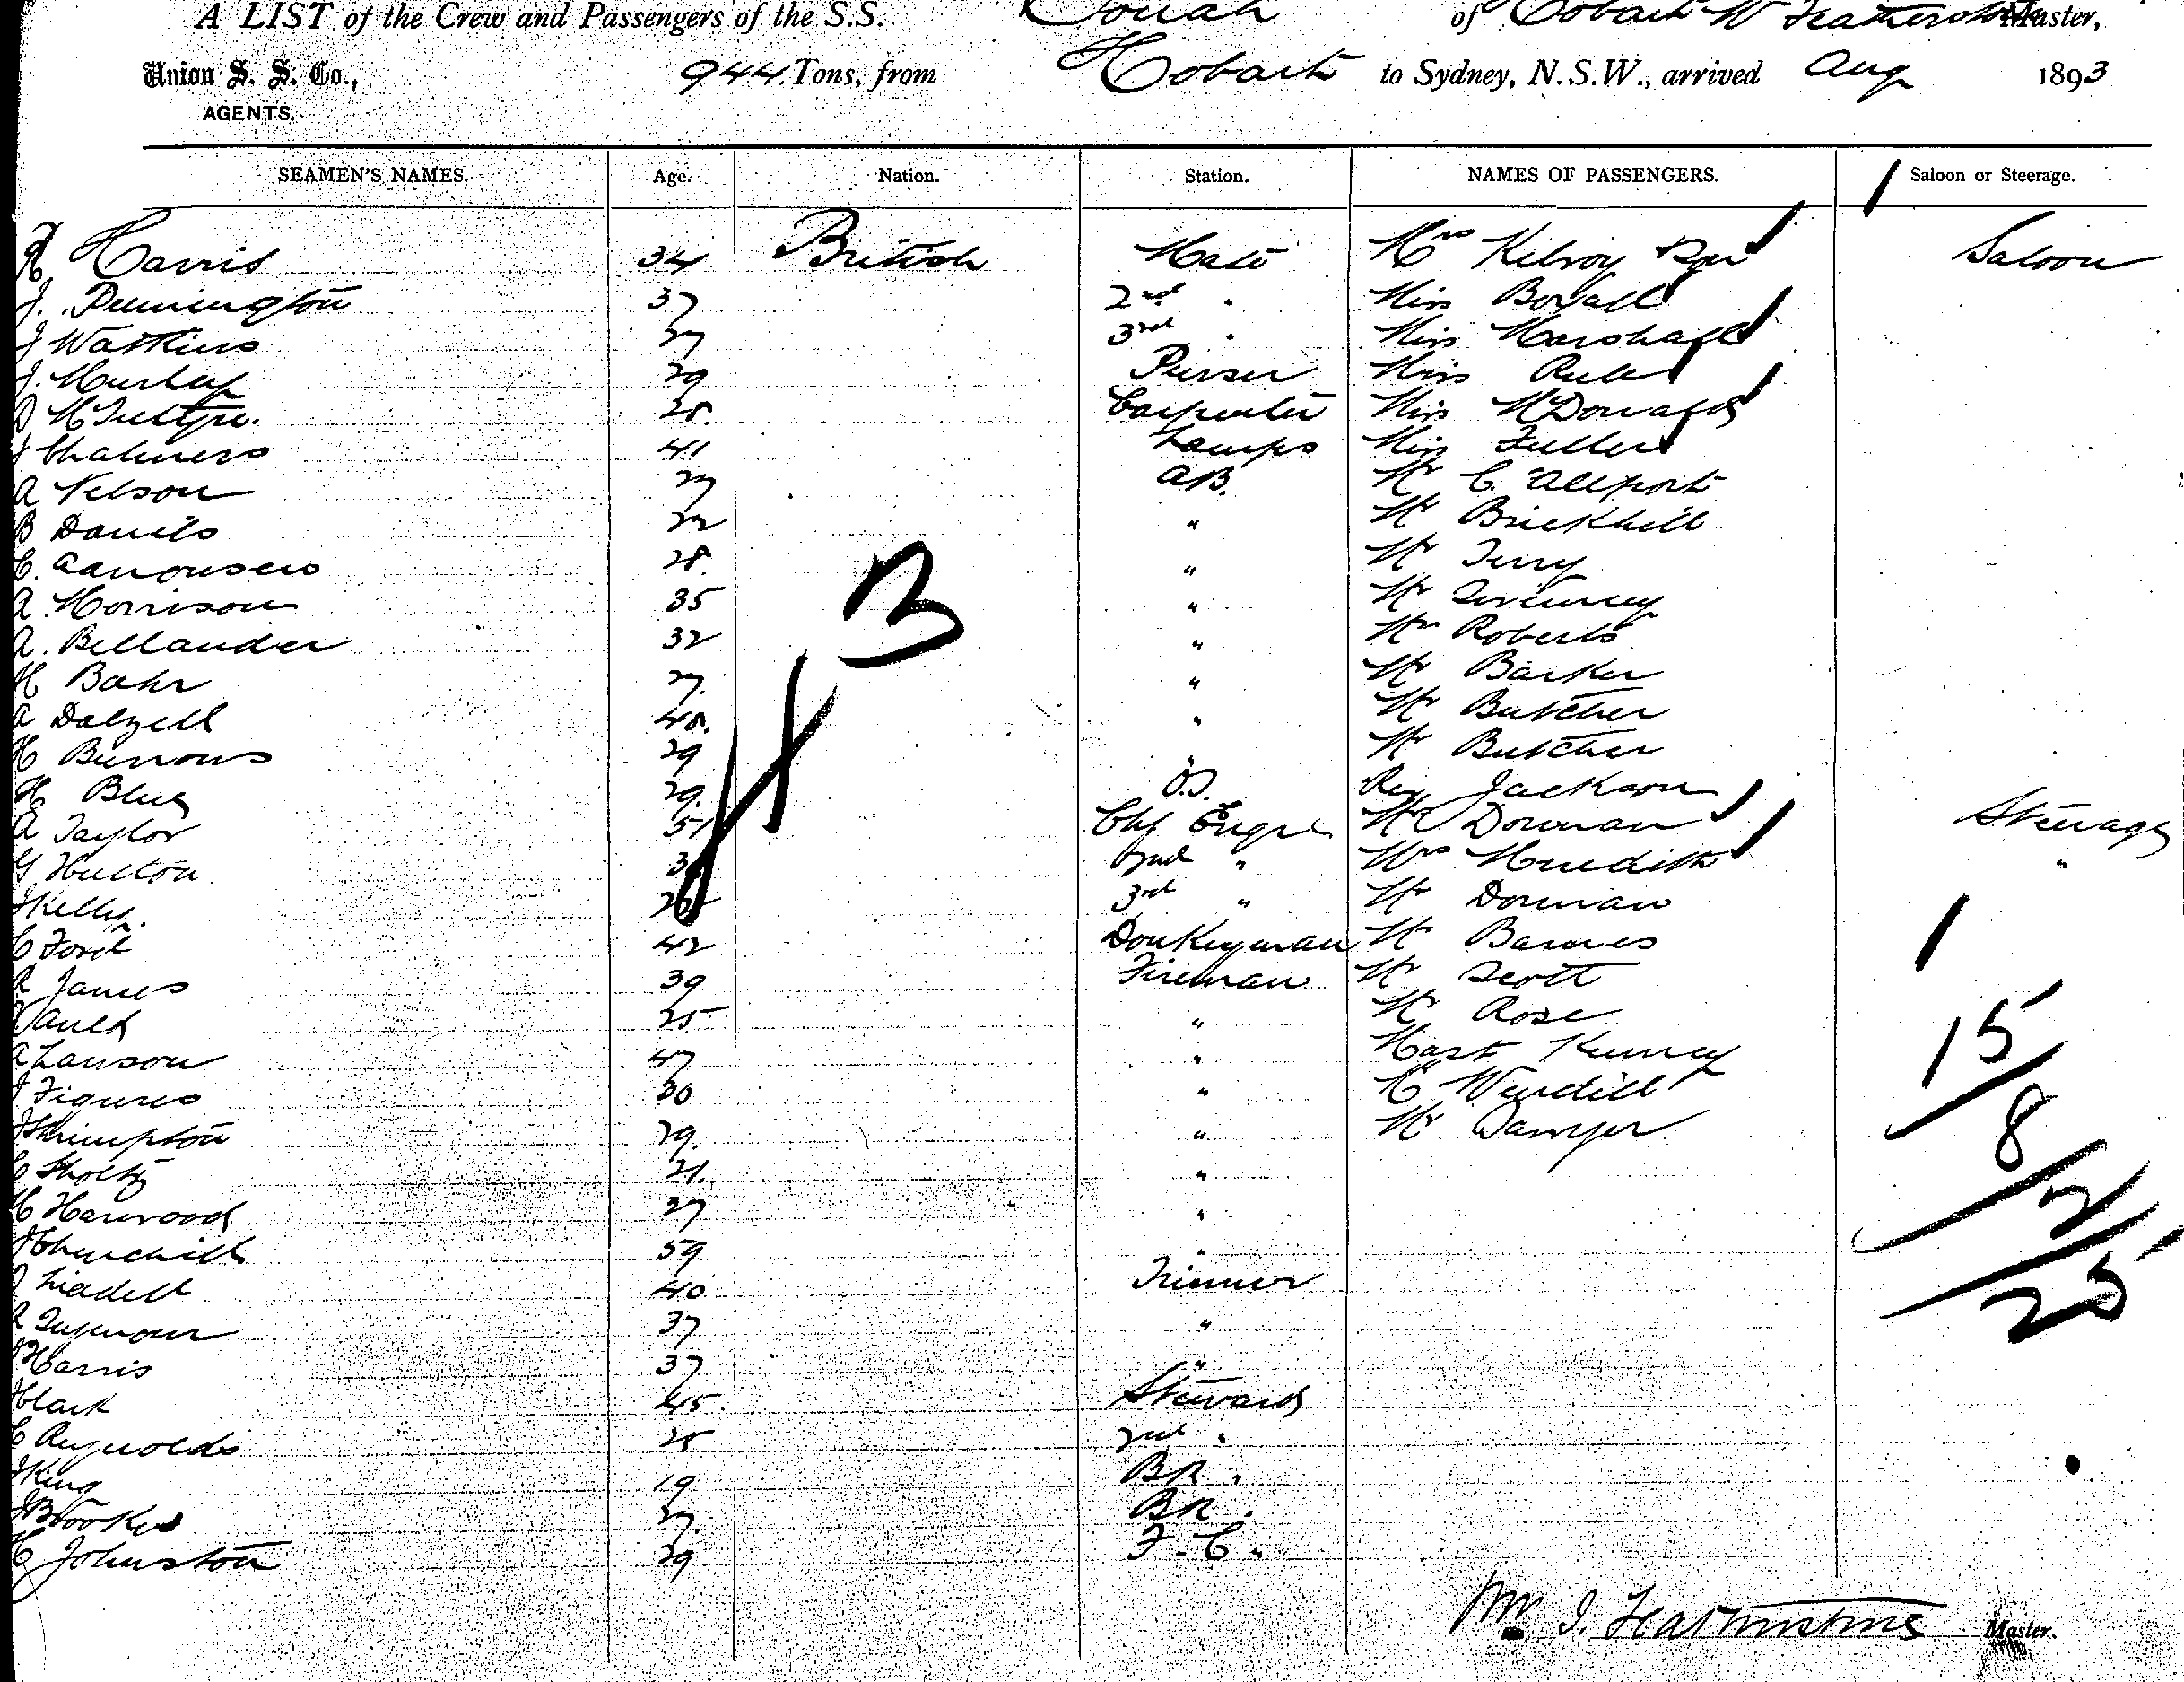 A LIST of the Crew and Passengers of the S.S. of Hobart W Featherstone Master,
Union S. S. Co., 944 Tons, from Hobart to Sydney, N.S.W., arrived Aug 1893
AGENTS.
SEAMEN'S NAMES. Age. Nation. Station. NAMES OF PASSENGERS. Saloon or Steerage.
Harris 34 British Mate Mrs Kilroy Saloon
J. Pennington 37 2nd " Miss Boyall
J Watkins 27 3rd " Miss Marshall
J. Murley 29 Purser Miss Rule
D McIntyre. 28. Carpenter Miss McDonald
J Chalmers 41 Lamps Miss Fuller
A Nelson 27 AB. Mr C. Allport
B Daniels 22 " Mr Brickhill
C. 28. " Mr Terry
A. Morrison 35 " Mr
A. Bellander 32 " Mr Roberts
H Bahr 27. " Mr Barker
A Dalzell 48. " Mr Butcher
H Burrows 29 " Mr Butcher
H Blug 29. O.S. Rev Jackson
A Taylor 51 Chf Engr Mr Dorman Steerage
G Hutton 3 2nd " Mrs Meredith "
J Kelly. 26 3rd " Mr Dorman
C Ford 42 Donkeyman Mr Barnes
R James 39 Fireman Mr Scott
Auld 25 " Mr Rose
A Lawson 47 " Mast
J Figures 30 "
J Shrimpton 29. " Mr Sawyer
C Sholtz 21. "
H Harwood 27 "
J Churchill 59 "
J Liddell 40 Trimmer
R Seymour 37 "
J Harris 37 "
J Clark 45 Steward
C Reynolds 25 2nd "
J King 19 BR "
J Brookes 27. BR "
C Johnston 29 F.C. "
B
15
8
2
25
Wm J. Featherstone Master.